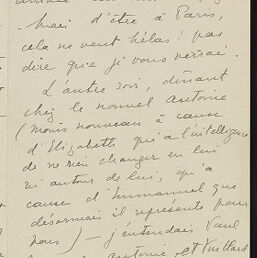 mais d'être à Paris,
cela ne veut hélas! pas
dire que je vous verrai.
L'autre soir, dînant
chez le nouvel Antoine
(Moins nouveau à cause
d'Elizabeth qui a l'intelligence
de ne rien changer en lui
ni autour de lui, qu'à
cause d'Emmanuel que
désormais il représente pour
nous) — j'entendais Paul
Antoine et Vuillard